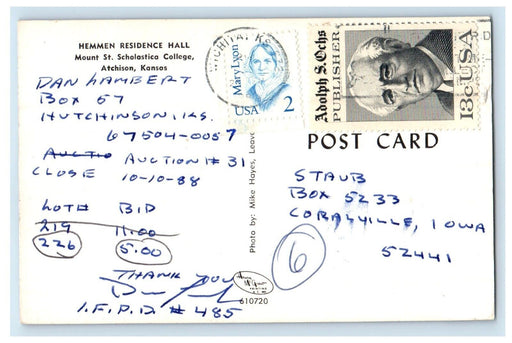 HEMMEN RESIDENCE HALL
Mount St. Scholastica College,
Atchison, Kansas
DAN LAMBERT
BOX 57
HUTCHINSON, KS.
67504-0057
AUCTIO AUCTION # 31
CLOSE 10-10-88
LOT# BID
219 11.00
226 5.00
THANK YOU
I.F.P.D. # 485
Photo by: Mike Hayes, Leave
610720
WICHITA, KS
Mary Lyon
USA 2
Adolph S. Ochs
PUBLISHER
18c USA
POST CARD
STAUB
BOX 5233
CORALVILLE, IOWA
52441
6